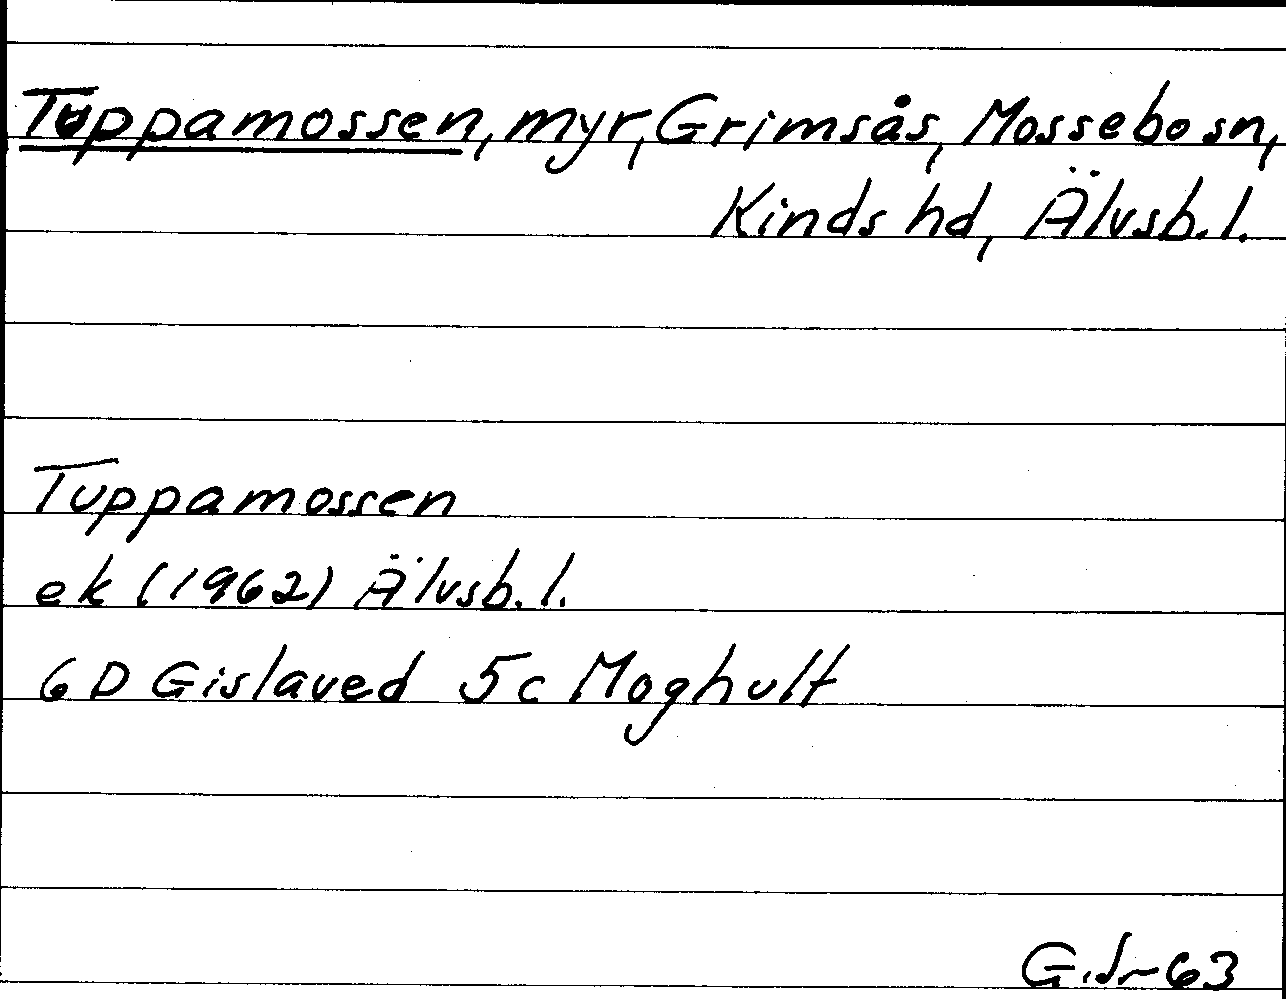 Tuppamossen, myr, Grimsås, Mossebo sn,
Kinds hd, Älvsb. l.
Tuppamossen
ek (1962) Älvsb. l.
6D Gislaved 5c Moghult
63